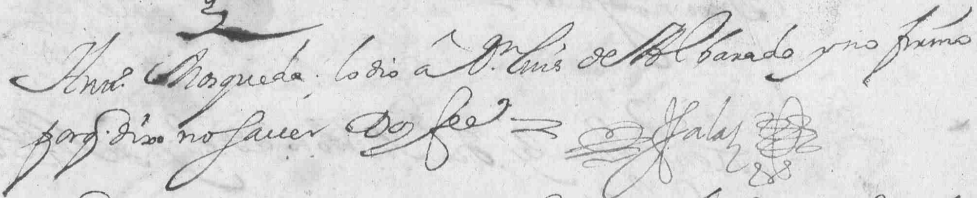 Antt.º Mosqueda, lo dio â D.n Luis de Albarado y no firmo
porq. dixo no saver Doy fee = Salas